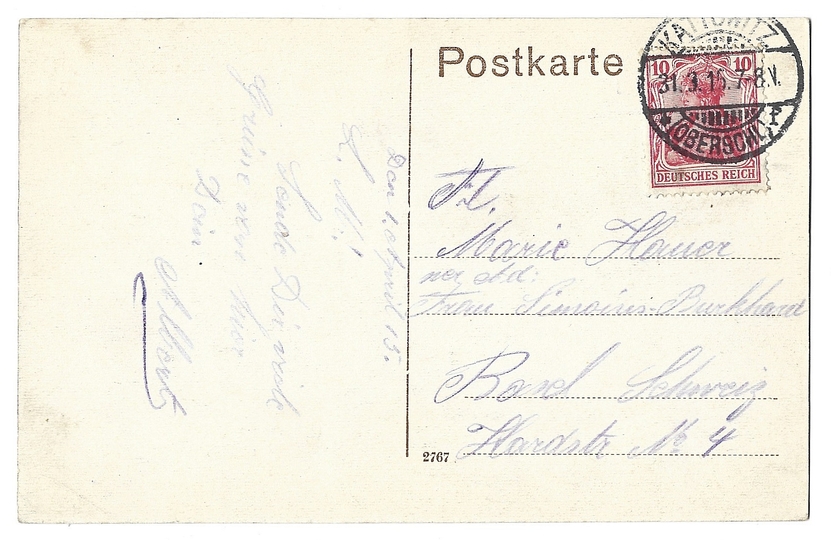 Den 1. April 15.
L. M!
Sende Dir viele
Grüsse von hier
Dein
Albert
Postkarte
KATTOWITZ
31.3.15.7-8V.
* (OBERSCHL.) f
10 10
DEUTSCHES REICH
Fl.
Marie Hauer
per Ad:
Frau Simoins-Burkhard
Basel Schweiz
Hardstr No 4
2767